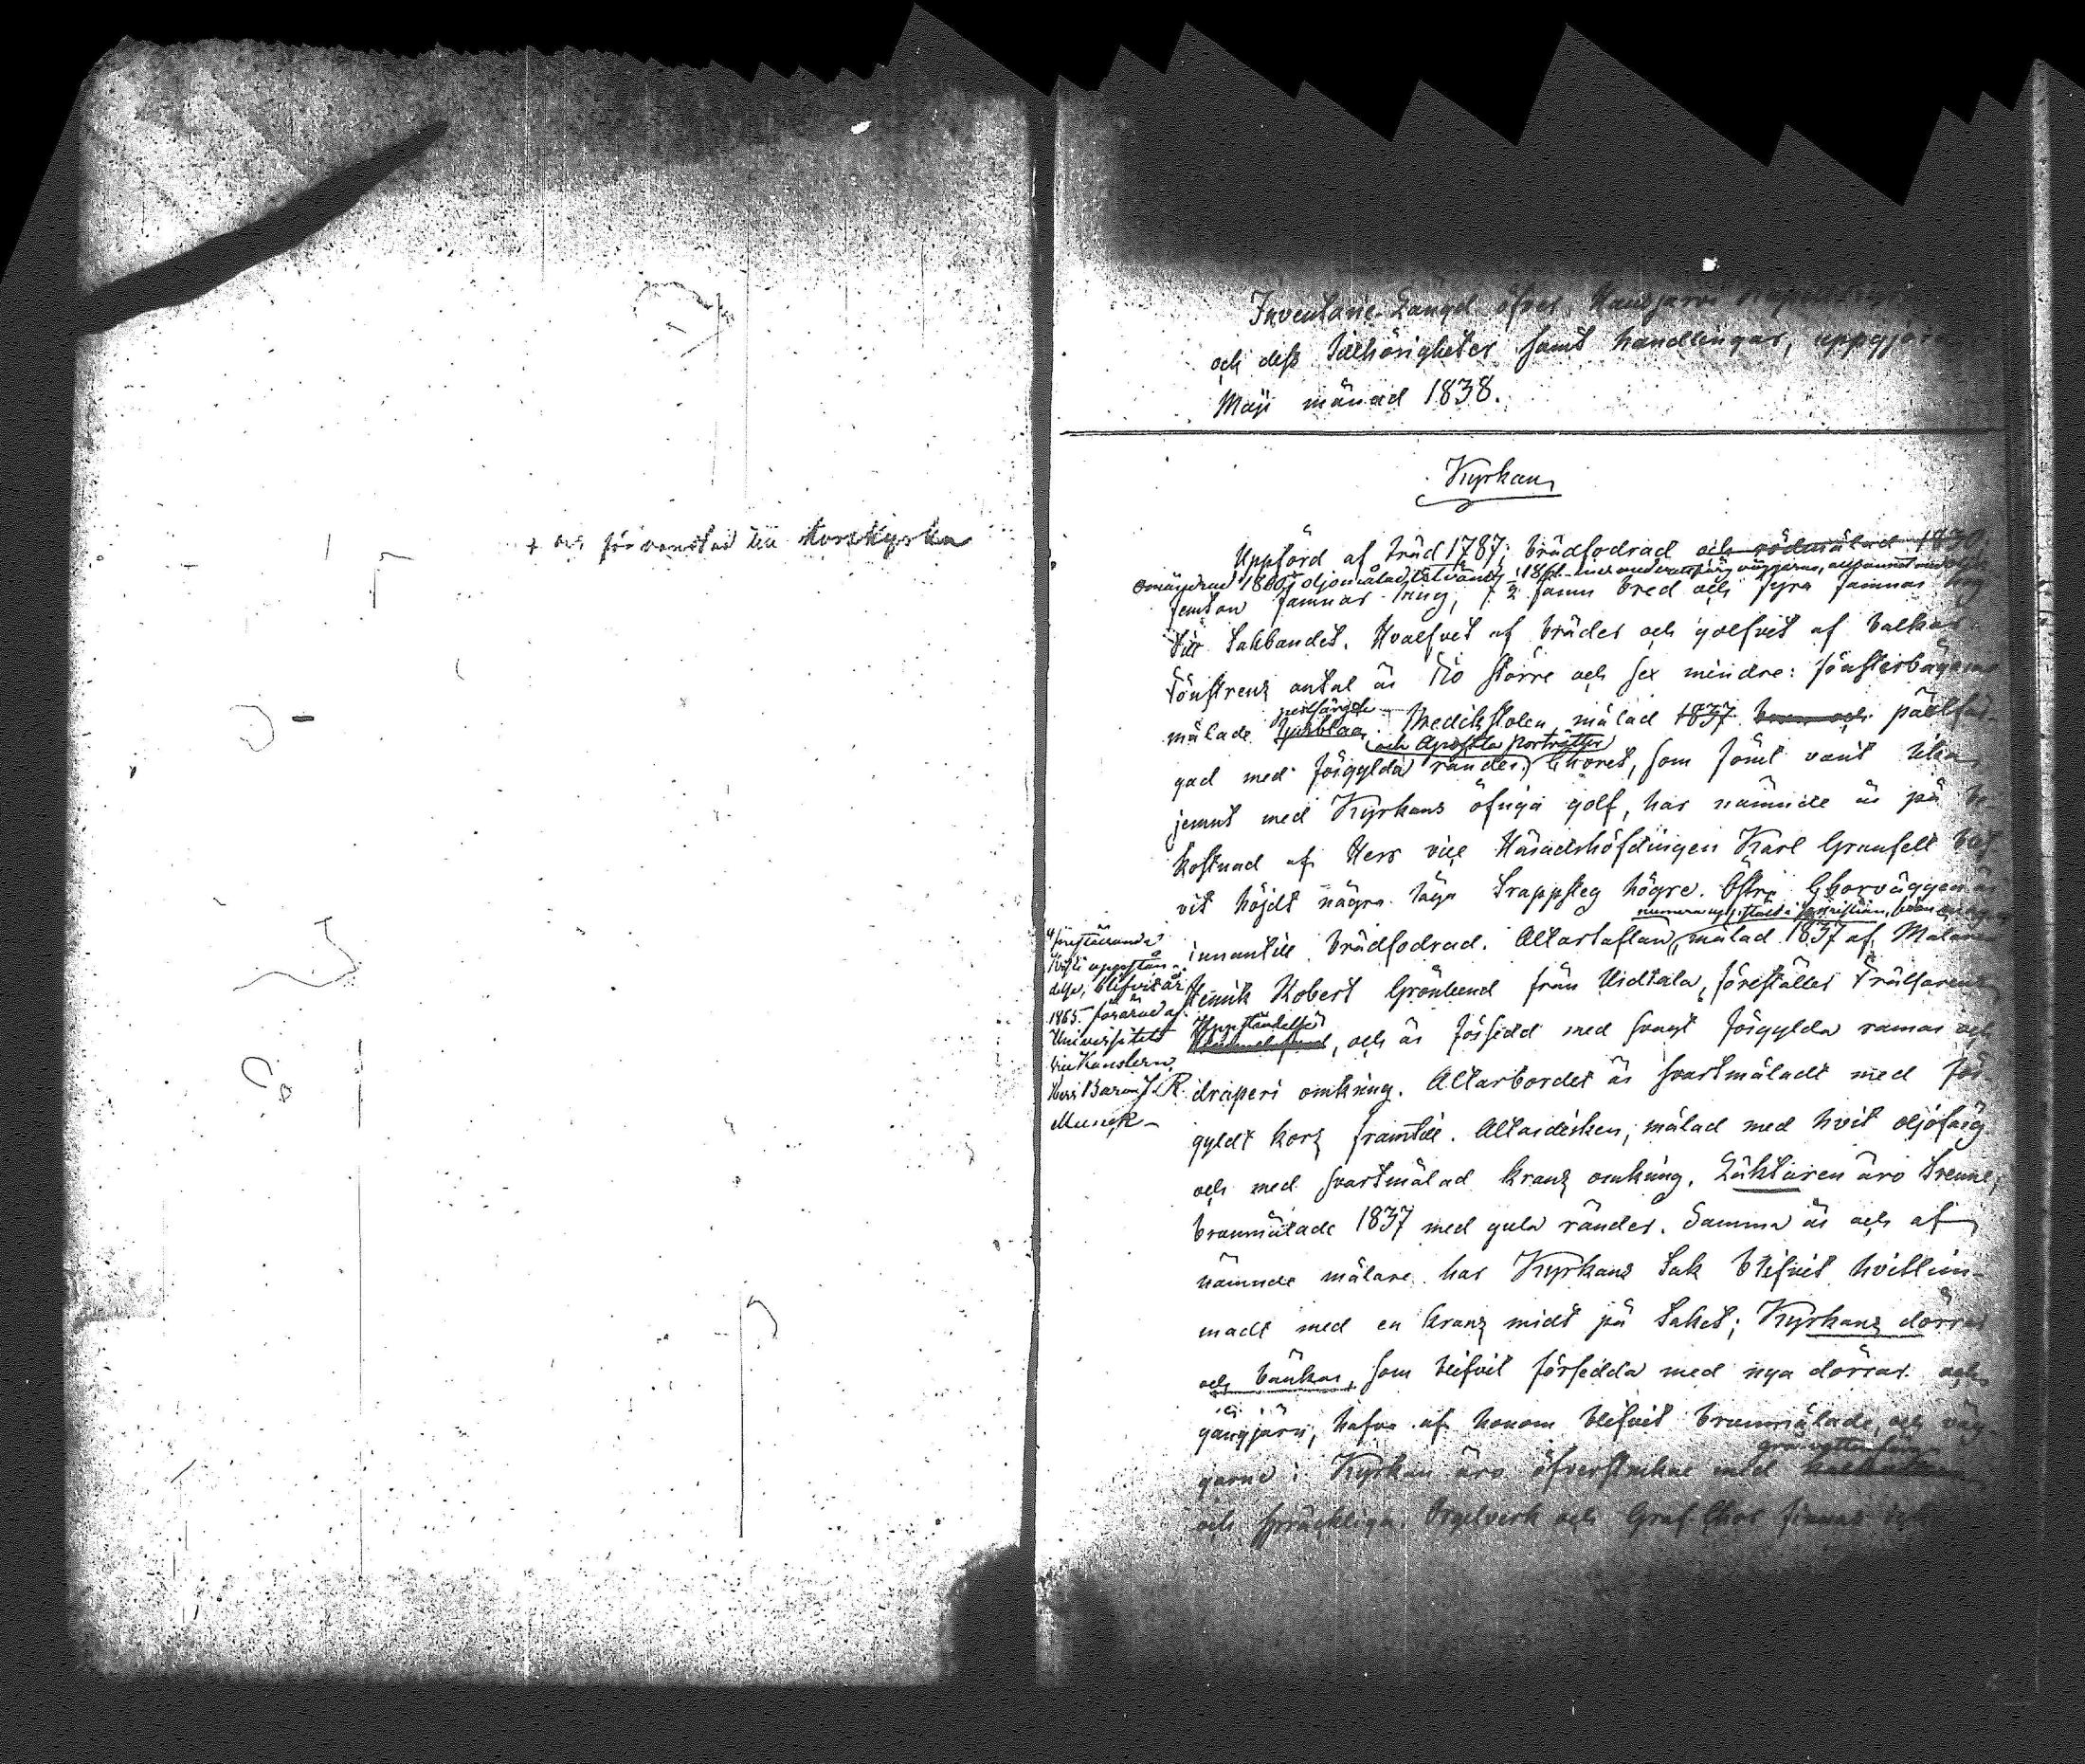 + och förvandlad till Korskyrka
Inventarie-Längd öfver Hausjärvi
och dess tillhörigheter samt handlingar, uppgjord
Maji månad 1838.
Kyrkan
Uppförd af träd 1787; brädfodrad och rödmålad 1830
Omändrad 1860, oljemålad utvändig 1861
femton famnar lång, 7 ½ famn bred och fyra famnar hög
till takbandet. Hvalfvet af bräder och golfvet af balkar.
Fönstrens antal är tio större och sex mindre: fönsterbågarne
perlfärgade
målade ljusblåa. Predikstolen målad 1837 brun och pärlfär-
och Apostla porträtter
gad med förgyllda ränder. Choret, som förut varit utan
jemnt med Kyrkans öfriga golf, har nämnde år på be-
kostnad af Herr vice Häradshöfdingen Karl Granfelt blif-
vit höjdt några låga trappsteg högre. Östra Chorväggen är
numera uppstäld i Sakristian,
innantill brädfodrad. Altartaflan, målad 1837 af Målaren
Henrik Robert Grönlund från Uskela, föreställer Frälsarens
Uppståndelse
, och är försedd med svagt förgyllda ramar och
draperi omkring. Altarbordet är svartmåladt med för-
gyldt kors framtill. Altardisken, målad med hvit oljefärg
och med svartmålad krans omkring. Läktaren äro trenne,
brunmålade 1837 med gula ränder. Samma år och af
nämnde målare har Kyrkans tak blifvit hvitlim-
madt med en krans midt på taket; Kyrkans dörrar
och bänkar, som blifvit försedda med nya dörrar och
gångjärn, hafva af honom blifvit brunmålade, och väg-
grå vattenfärg
garne i Kyrkan äro öfverstrukne med
och spräckliga. Orgelverk och Graf-Chor finnas icke
föreställande
Kristi uppstån-
delse, blifvit år
1865 förärad af
Universitets
vice Kanslern,
Herr Baron J. R.
Munck